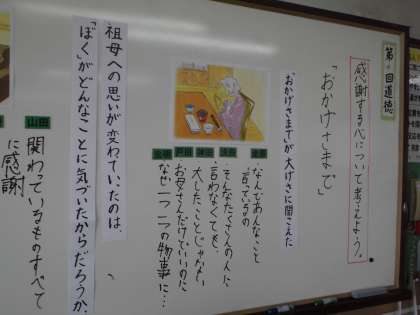 回道徳
感謝する心について考えよう。
「おかげさまで」
「おかげさまで」が大げさに聞こえた
なんであんなこと
言っているの
そんなたくさんの人に
言わなくても、
大したことじゃない
お母さんだけでいいのに
なぜ一つ一つの物事に…
祖母への思いが変わっていったのは、
「ぼく」がどんなことに気づいたからだろうか。
山田
関わっているものすべて
に感謝